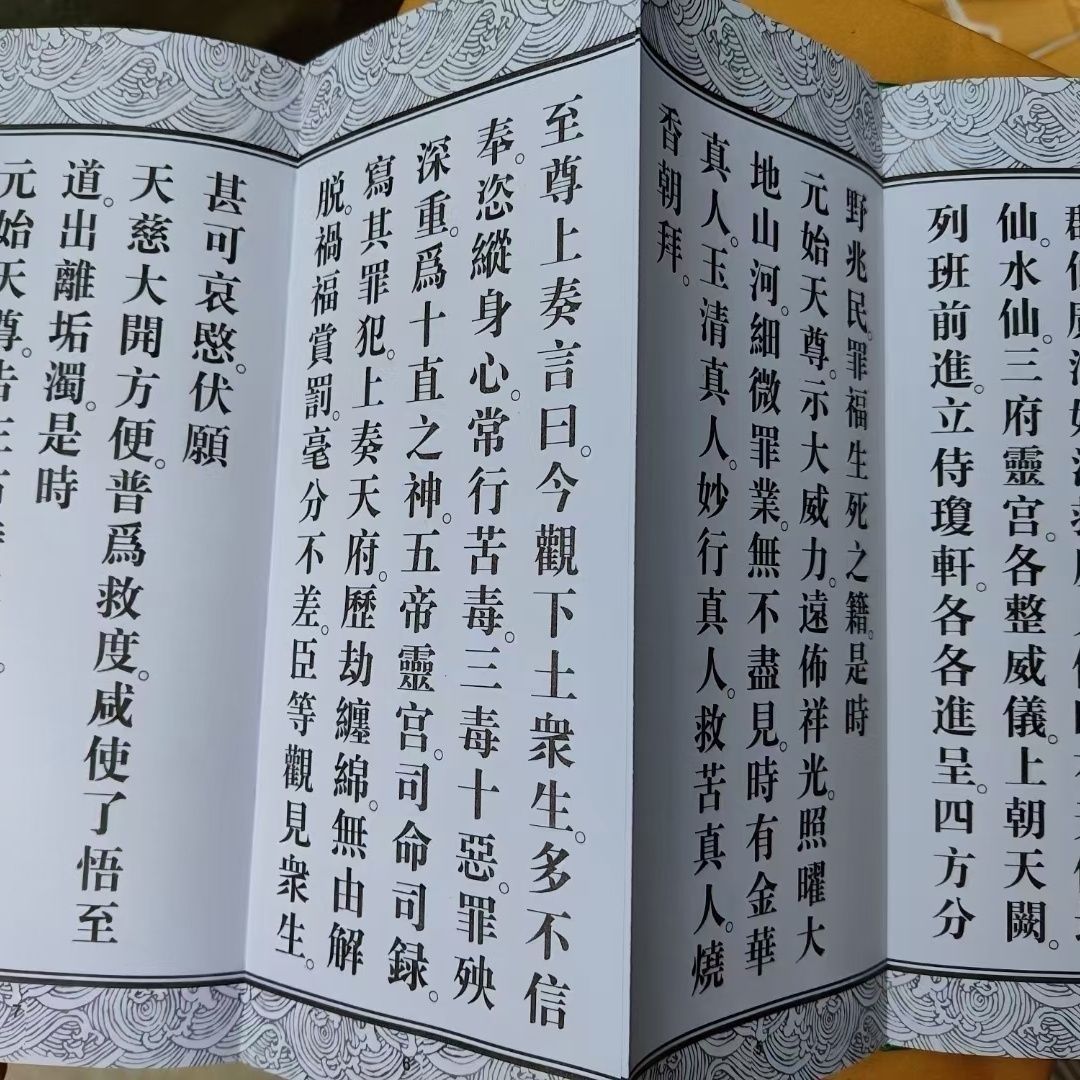 仙。水仙。三府靈宫。各整威儀。上朝天闕。
列班前進。立侍瓊軒。各各進呈。四方分
野兆民。罪福生死之籍。是時
元始天尊。示大威力。遠佈祥光。照曜大
地山河。細微罪業。無不盡見。時有金華
真人。玉清真人。妙行真人。救苦真人。燒
香朝拜。
至尊上奏言曰。今觀下土衆生。多不信
奉。恣縱身心。常行苦毒。三毒十惡。罪殃
深重。爲十直之神。五帝靈宫。司命司録。
寫其罪犯。上奏天府。歷劫纏綿。無由解
脱。禍福賞罰。毫分不差。臣等觀見衆生。
6
甚可哀愍。伏願
天慈大開方便。普爲救度。咸使了悟至
道。出離垢濁。是時
元始天尊。告
7